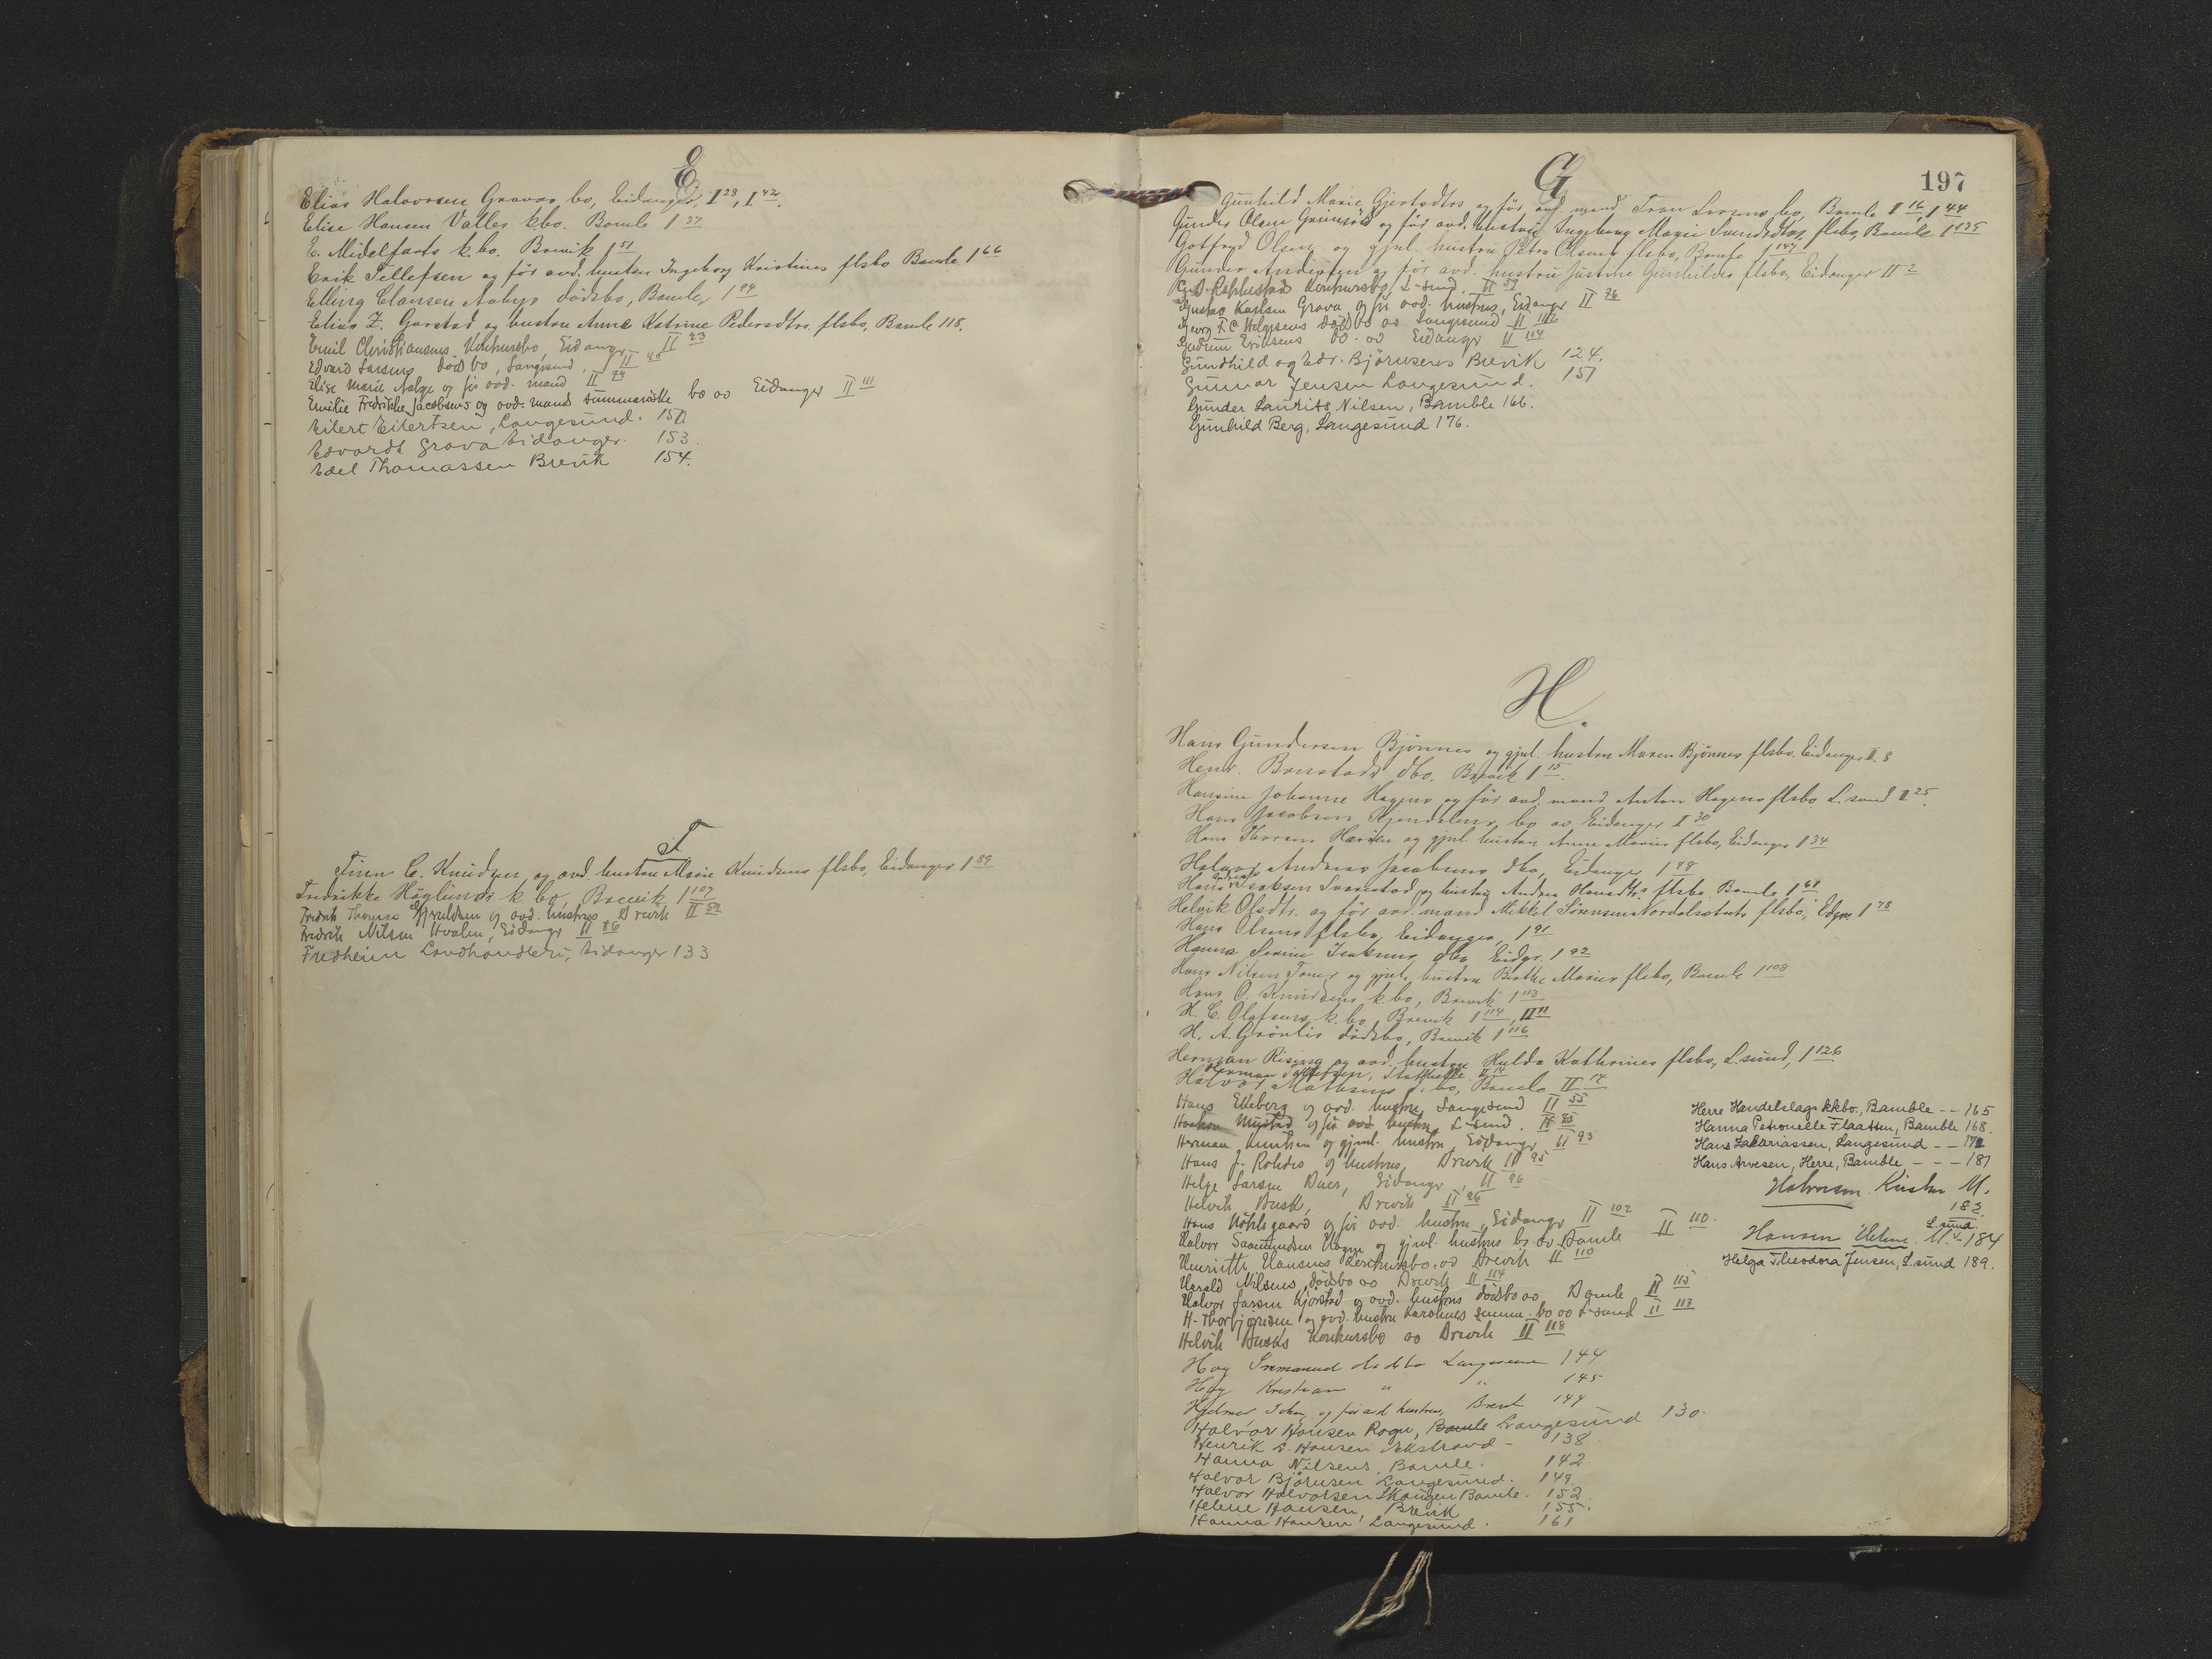 E
Elias Halvorsen Gravas bo, Eidanger, I 28, I 42.
Elise Hansen Valles kbo. Bamle I 37
E. Midelfarts k.bo. Brevik I 51
Erik Tellefsen og før avd. hustru Ingeborg Kristines flsbo Bamle I 66
Elling Clausen Aabys dødsbo, Bamle, I 94
Elias Z. Garstad og hustru Anne Katrine Pedersdtrs. flsbo, Bamle 118.
Emil Christiansens Konkursbo, Eidangr II 23
Edvard Larsens dødbo, Langesund, II 40
Elise Marie Aabye og før avd. mand II 74
Emilie Fredrikke Jacobsens og avd. mands summariske bo oo Eidanger II 111
Eilert Eilertsen, Langesund. 150
Edvards Grava Eidanger. 153.
Edel Thomassen Brevik 154.
F
Finn C. Knudsen og avd. hustru Marie Knudsens flsbo, Eidanger I 89
Fredrikke Höglunds k.bo, Brevik I 107
Fredrik Thomas og avd. hustrus, Brevik II 52
Fredrik Nilsen Hvalen, Eidangr II 86
Fredheim Landhandleri, Eidanger 133
G
197
Gunhild Marie Gjertsdtrs og før avd mand Iver Larsens bo, Bamle I 16, I 44
Gunder Olsen Grimsöd og før avd. hustru Ingeborg Marie Svendsdtrs flsbo, Bamle I 135
Gotfred Olsen og gjnl. hustru Petra Olsens flsbo, Bamle I 147
Gunder Andersen og før avd. hustru Justine Gunhildes flsbo, Eidanger II 2
G. A. Konkursbo, L-sund. II 57
Gustav Karlsen Grava og før avd. hustrus, Eidangr II 76
Georg F. C. Helgesens dødbo oo Langesund II 112
Gudrun Eriksens bo oo Eidangr II 114
Gundhild og Edr. Björnsens Brevik 124.
Gunnar Jensen Langesund. 151
Gunder Laurits Nilsen, Bamble 166.
Gunhild Berg, Langesund 176.
H.
Hans Gundersen Bjönnes og gjnl. hustru Maren Bjönnes flsbo. Eidanger I. 8
Henr. Bonstads dbo. Brevik I 15.
Hansine Johanne Hagens og før avd. mand Anton Hagens flsbo L.sund I 25.
Hans Jacobsen bo oo, Eidanger I 30
Hans Thorsen og gjnl hustru Anne Maries flsbo, Eidanger I 34
Halvor Andreas Jacobsens dbo, Eidanger I 48
Hans Isaksen og hustru Andrea Hansdtrs flsbo Bamle I 61
Helvik Olsdtr. og før avd. mand Mikkel Sørensen flsbo, Edgr. I 78
Hans Olsens flsbo, Eidanger, I 91
Hanna Serine Isaksens dbo Eidgr. I 92
Hans Nilsen og gjnl. hustru Berthe Maries flsbo, Bamle I 108
Hans O. Knudsens k.bo, Brevik I 113
H. C. Olafsens k.bo Brevik I 114, II 11
H. A. Grönlis dødsbo, Brevik I 116
Herman Rising og avd. hustru Hulda Kathrines flsbo, L.sund, I 126
Herman Tellefsen, Stathelle II 14
Halvor Mathisens d. bo, Bamle II 14
Hans Ekeberg og avd. hustru, Langesund II 55
Haakon Mustad og før avd hustru, L-sund. II 85
Herman Knutsen og gjenl. hustru, Eidangr II 93
Hans J. og hustrus, Brevik II 95
Helge Larsen Bues, Eidangr II 96
Helvik Busk, Brevik II 96
Hans og før avd. hustru, Eidangr II 102
Halvor Saamundsen og gjenl. hustrus bo oo Bamle II 110.
Henriette Hansens Konkursbo. oo Brevik II 110
Harald Nilsens, dødbo oo Brevik II 114
Halvor Larsen Kjørstad og avd. hustrus dødbo oo Bamle II 115
H. Thorbjørnsen og avd. hustru Karolines summ. bo oo L-sund II 113
Helvik Busks Konkursbo oo Brevik II 118
Høy dødsbo Langesund 144
Høy Kristian " " 145
Hjelmer og før avd hustru, Brevik 144
Halvor Hansen Rogn, Bamle Langesund 130.
Henrik L. Hansen Ekstrand - 138
Hanna Nilsens Bamle. 142
Halvor Björnsen Langesund. 149.
Halvor Halvorsen Skaugen Bamle. 152
Helene Hansen Brevik 155.
Hanna Hansen, Langesund. 161
Herre Handelslags kkbo., Bamble -- 165
Hanna Petronelle Flaatten, Bamble 168.
Hans Zakariassen, Langesund -- 172
Hans Arvesen, Herre, Bamble --- 181
Halvorsen M.
183.
L.sund.
Hansen Helene M. - 184
Helga Theodora Jensen, L.sund 189.